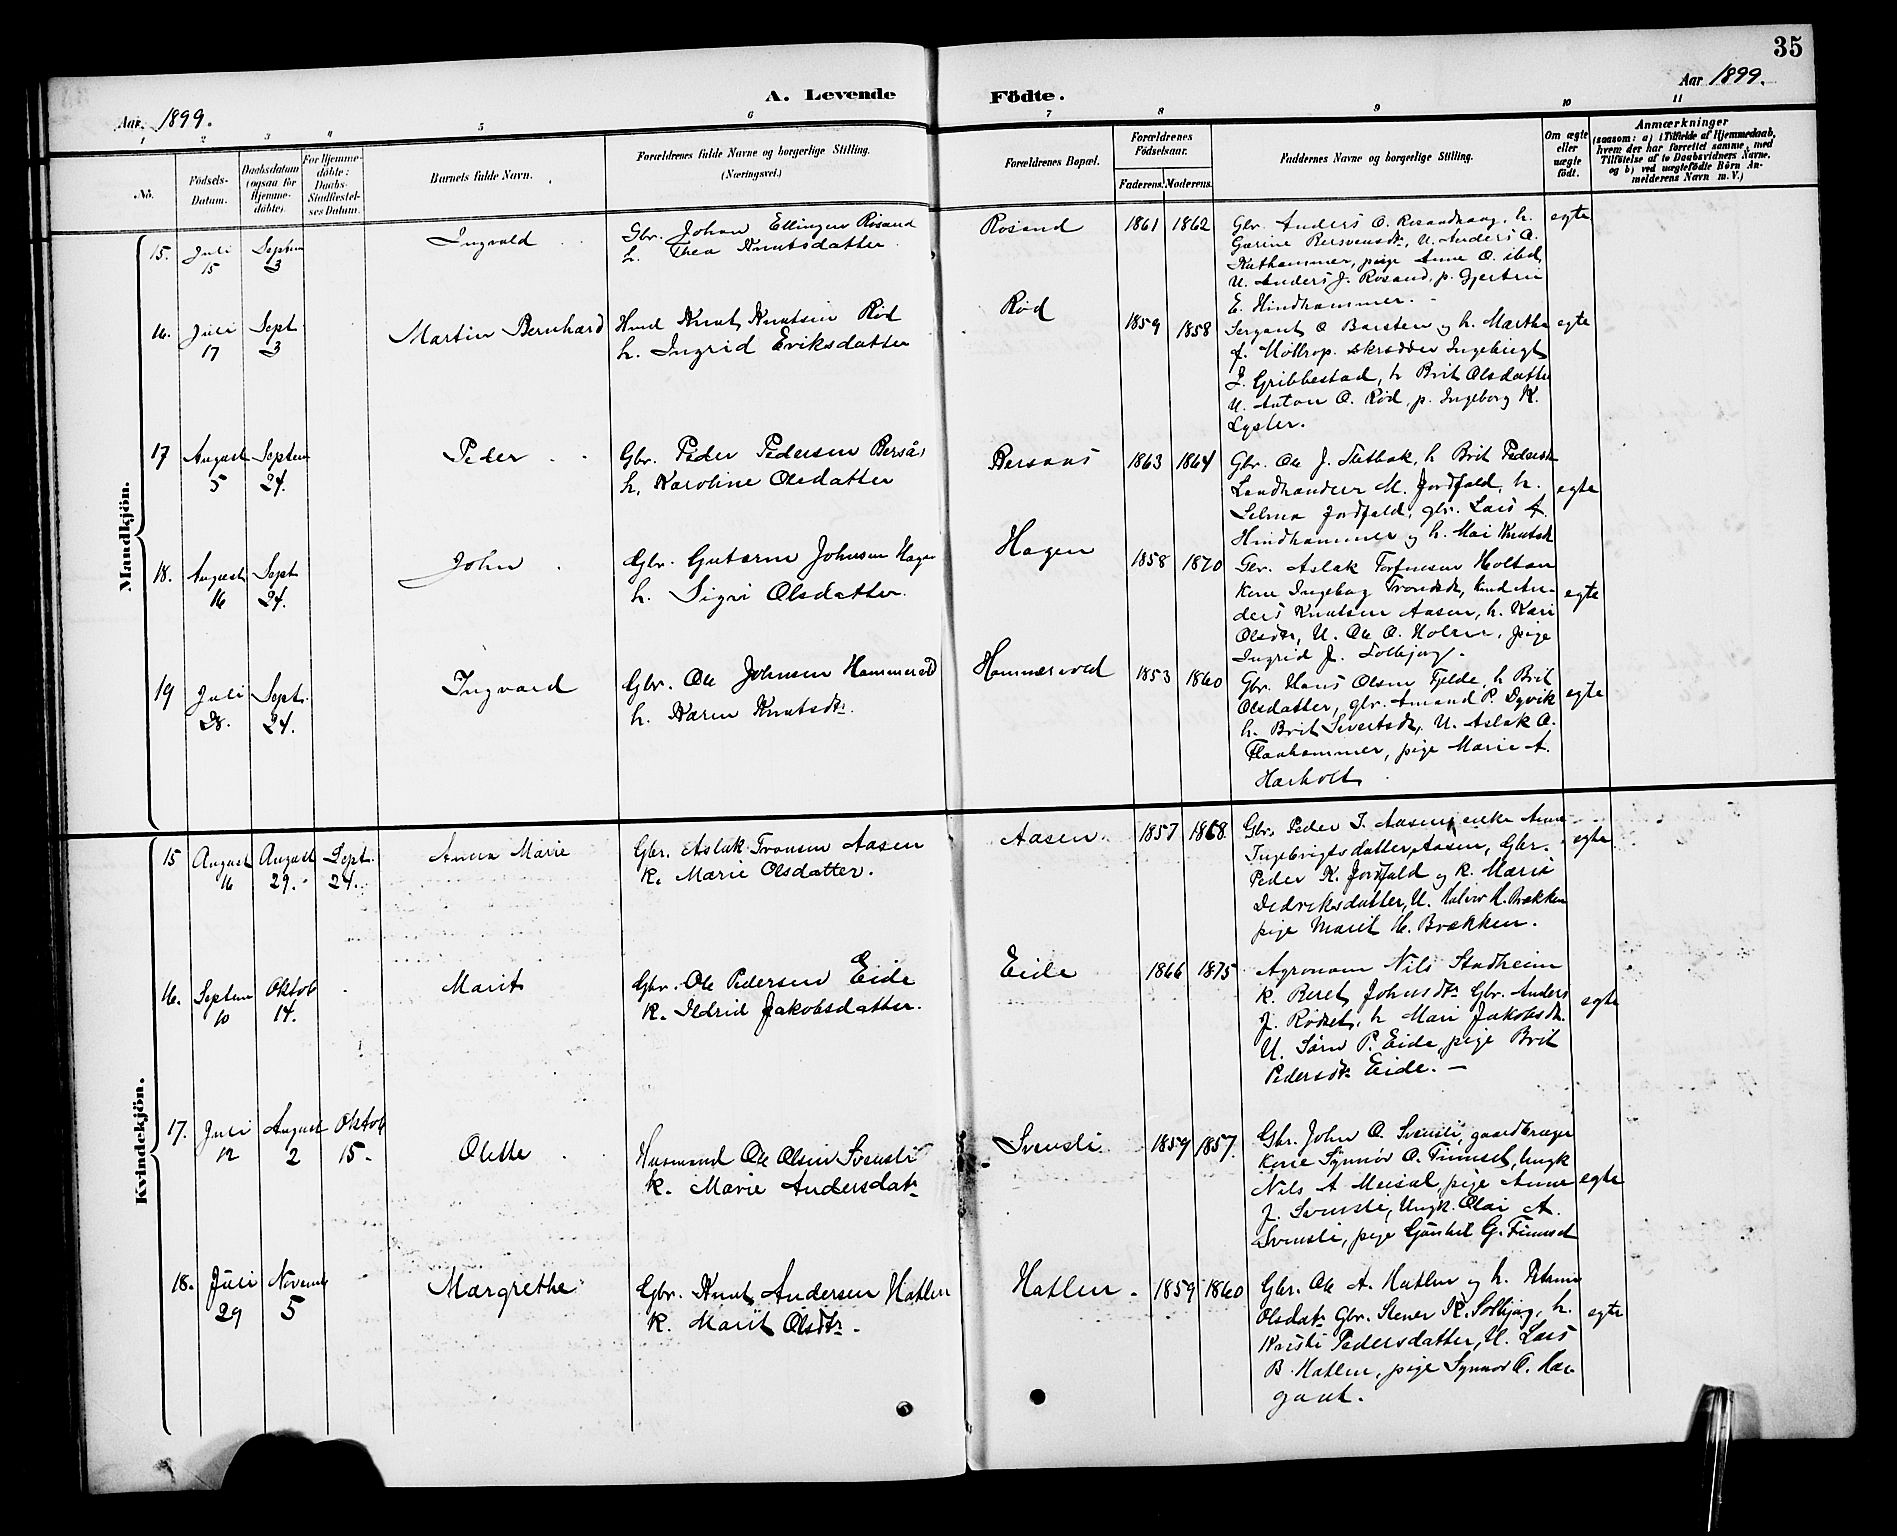 35
Aar 1899.
Aar 1899.
A. Levende
Födte.
1 2 3 4 5 6 7 8 9 10 11
No.
Födsels-
Datum.
Daabsdatum
(ogsaa for
Hjemme-
döbte).
For Hjemme-
döbte:
Daabs-
Stadfæstel-
ses Datum.
Barnets fulde Navn.
Forældrenes fulde Navne og borgerlige Stilling.
(Næringsvei.)
Forældrenes Bopæl.
Forældrenes
Födselsaar.
Faderens.
Moderens.
Faddernes Navne og borgerlige Stilling.
Om ægte
eller
uægte
födt.
Anmærkninger
(saasom: a) i Tilfælde af Hjemmedaab,
hvem der har forrettet samme, med
Tilföielse af to Daabsvidners Navne,
og b) ved uægtefödte Börn An-
melderens Navn m. V.)
Mandkjön.
15. Juli
15
Septem
3
Ingvald
Gbr. Johan Ellingsen Rösand
h. Thea Knutsdatter
Rösand 1861 1862
Gbr. Anders O. Rosandhaug, h.
Gurine Bersvensdr, U. Anders O.
pige Anne O. ibid
U. Anders J. Rosand, p. Gjertrue
E. Hindhammer.
egte
16. Juli
17
Sept
3
Martin Bernhard
Husd Knut Knutsen Röd
h. Ingrid Eriksdatter
Röd 1859 1858
Sergant O Barsten og h. Martha
f. Moltrop. skrædder Ingebrigt
J. Gribbestad, h Brit Olsdatter
U. Anton O. Röd, p. Ingeborg K.
Lyster.
egte
17 August
5
Septem
24.
Peder
Gbr. Peder Pedersen Berså
h. Karoline Olsdatter
Bersaas 1863 1864
Gbr. Ole J. Sletbak, h Brit Pedersdr
Landhandler M. Jordfald, h.
Selma Jordfald, gbr. Lars A.
Hindhammer og h. Mari Knutsdr
egte
18. August
16
Sept
24.
John
Gbr. Gutorm Johnsen Hagen
h. Sigri Olsdatter.
Hagen 1858 1870
Gbr. Aslak Torfinsen Holten
Kone Ingeborg Trondsdr, husd An-
ders Knutsen Aasen, h. Kari
Olsdr, U. Ole O. Holen, pige
Ingrid J. Solbjørg.
egte
19 Juli
28.
Sept.
24.
Ingvard
Gbr. Ole Johnsen Hammervold
h. Karen Knutsdr.
Hammervold 1853 1860
Gbr. Hans Olsen Fjelde, h Brit
Olsdatter, gbr. Amand P. Dyvik
h. Brit Sivertsdr, U. Aslak O.
Flaahammer, pige Marie A.
Harholt
egte
Kvindekjön.
15 August
16
August
29.
Sept.
24.
Anna Marie
Gbr. Aslak Tronsen Aasen
k. Marie Olsdatter.
Aasen. 1857 1868
Gbr. Peder I. Aasen, enke Anne
Ingebrigtsdatter Aasen, Gbr.
Peder K. Jordfald og k. Marie
Didriksdatter, U. Halvor H. Brækken
pige Marit H. Brækken.
egte
16. Septem
10
Oktob
14.
Marit
Gbr. Ole Pedersen Eide
k. Ildrid Jakobsdatter.
Eide 1866 1875
Agronom Nils Stadheim
k. Beret Johnsdr. Gbr. Anders
J. Rödset, h Mari Jakobsdr.
U. Sören P. Eide, pige Brit
Pedersdr Eide. —
egte
17. Juli
12
August
2
Oktob
15.
Olette
Husmand Ole Olsen Svensli
k. Marie Andersdatr
Svensli 1859 1857.
Gbr. John O. Svensli, gaardbruger
Kone Synnöv O. Finnset, Ungk
Nils A Meisal, pige Anne
J. Svensli, Ungk. Olai A.
Svensli, pige Gunhil G. Finnset
egte
18. Juli
29
November
5
Margrethe
Gbr. Knut Andersen Hatlen
k. Marit Olsdtr.
Hatlen 1859 1860
Gbr. Ole A. Hatlen og h. Petrine
Olsdatr Gbr. Stener K. Solbjørg, h.
Kristi Pedersdatter, U. Lars
B. Hatlen, pige Synnøv O. Har-
gaut.
egte